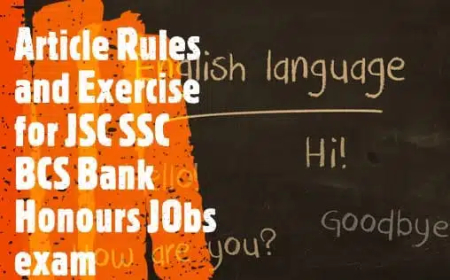 Article Rules
and Exercise
for JSC SSC
BCS Bank
Honours JObs
exam
English language
Hi!
Hello!
Goodbye
How are you?